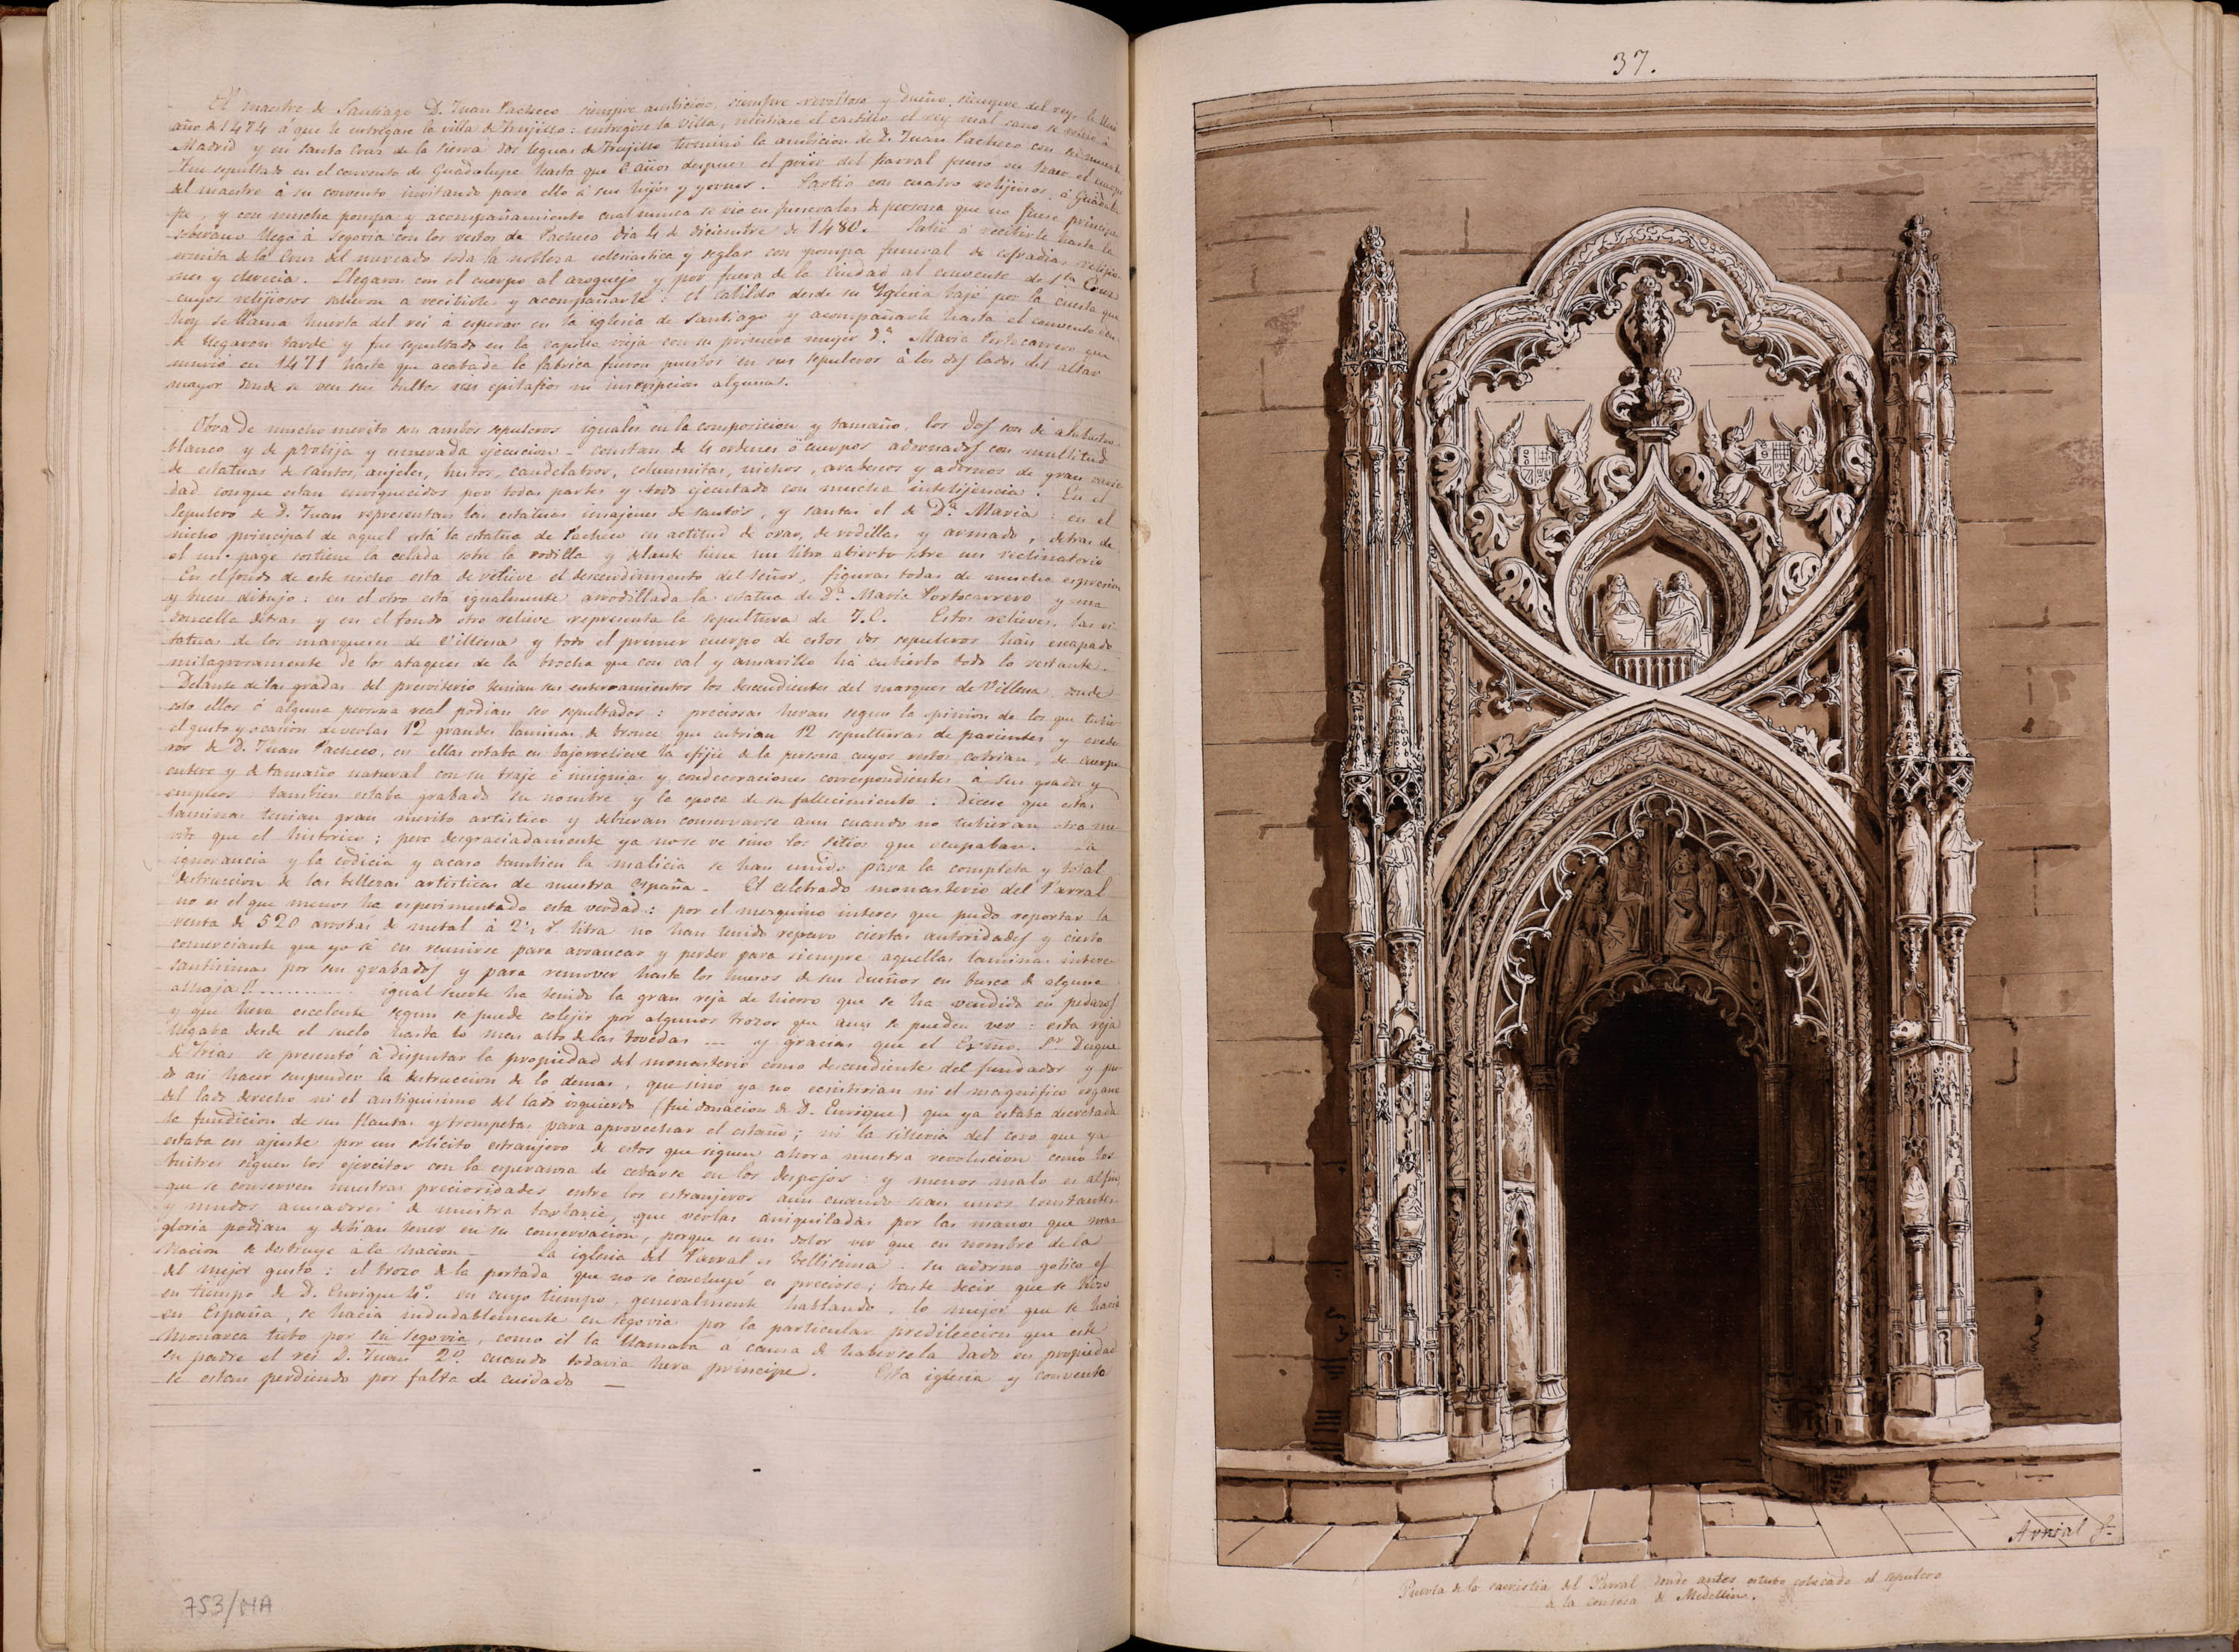 El maestre de Santiago D. Juan Pacheco siempre ambicioso, siempre revoltoso y dueño siempre del rey, le llevó
año de 1474 á que le entregase la villa de Trujillo: entregose la Villa, resistiase el castillo el rey mal sano se volvió á
Madrid y en Santa Cruz de la Sierra dos leguas de Trujillo terminó la ambicion de D. Juan Pacheco con su muerte
Fue sepultado en el convento de Guadalupe hasta que 6 años despues el prior del parral pensó en traer el cuerpo
del maestre à su convento invitando para ello á sus hijos y yernos. Partió con cuatro relijiosos á Guadalu
pe, y con mucha pompa y acompañamiento cual nunca se vio en funerales de persona que no fuese principe
soberano llegó á Segovia con los restos de Pacheco dia 4 de diciembre de 1480. Salió á recibirle hasta la
ermita de la Cruz del mercado toda la nobleza eclesiastica y seglar con pompa funeral de cofradias relijio
nes y clerecia. Llegaron con el cuerpo al azoguejo y por fuera de la Ciudad al convento de Sta Cruz
cuyos relijiosos salieron a recibirle y acompañarle: el Cabildo desde su Yglesia bajó por la cuesta que
hoy se llama huerta del rei á esperar en la iglesia de Santiago y acompañarle hasta el convento don
de llegaron tarde y fue sepultado en la capilla vieja con su primera mujer Dª Maria Portocarrero que
murió en 1471 hasta que acabada la fabrica fueron puestos en sus sepulcros á los dos lados del altar
mayor donde se ven sus bultos sin epitafios ni inscripcion algunas.
Obra de mucho merito son ambos sepulcros iguales en la composicion y tamaño, los dos son de alabastro
blanco y de prolija y esmerada ejecucion - constan de 4 ordenes ó cuerpos adornados con multitud
de estatuas de santos, anjeles, bustos, candelabros, columnitas, nichos, arabescos y adornos de gran varie
dad conque estan enriquecidos por todas partes y todo ejecutado con mucha intelijencia. En el
Sepulcro de D. Juan representan las estatuas imajenes de santos, y santas el de Dª Maria: en el
nicho principal de aquel está la estatua de Pacheco en actitud de orar, de rodillas y armado, detras de
el un page sostiene la celada sobre la rodilla y delante tiene un libro abierto sobre un reclinatorio
En el fondo de este nicho esta de relieve el descendimiento del Señor, figuras todas de mucha espresion
y buen dibujo: en el otro está igualmente arrodillada la estatua de Dª Maria Portocarrero y una
doncella detras y en el fondo otro relieve representa la sepultura de J.C. Estos relieves, las es
tatuas de los marqueses de Villena y todo el primer cuerpo de estos dos sepulcros han escapado
milagrosamente de los ataques de la brocha que con cal y amarillo há cubierto todo lo restante.
Delante de las gradas del presviterio tenian sus enterramientos los descendientes del marques de Villena, donde
solo ellos ó alguna persona real podian ser sepultados: preciosas heran segun la opinion de los que tubie
el gusto y ocasion de verlas 12 grandes laminas de bronce que cubrian 12 sepulturas de parientes y erede
ros de D. Juan Pacheco, en ellas estaba en bajorrelieve la efijie de la persona cuyos restos cobrian, de cuerpo
entero y de tamaño natural con su traje é insignias y condecorraciones correspondientes a sus grados y
empleos tambien estaba grabado su nombre y la epoca de su fallecimiento: Dicese que estas
laminas tenian gran merito artistico y debieran conservarse aun cuando no tubieran otro me
rito que el historico; pero desgraciadamente ya no se ve sino los sitios que ocupaban. La
ignorancia y la codicia y acaso tambien la malicia se han unido para la completa y total
destruccion de las bellezas artisticas de nuestra España - El celebrado monasterio del Parral
no es el que menos ha esperimentado esta verdad: por el mezquino interes que pudo reportar la
venta de 520 arrobas de metal á 2½ r. libra no han tenido reparo ciertas autoridades y cierto
comerciante que yo sé en reunirse para arrancar y perder para siempre aquellas laminas intere
santisimas por sus grabados y para remover hasta los huesos de sus dueños en busca de alguna
alhaja!! .......... igual suerte ha tenido la gran reja de hierro que se ha vendido en pedazos
y que hera escelente segun se puede colejir por algunos trozos que aun se pueden ver: esta reja
llegaba desde el suelo hasta lo mas alto de las bovedas ... y gracias que el Exmo. Sr Duque
de Frias se presentó á disputar la propiedad del monasterio como descendiente del fundador y pu
do asi hacer suspender la destruccion de lo demas, que sinó ya no ecsistirian ni el magnifico organo
del lado derecho ni el antiquisimo del lado izquierdo (fue donacion de D. Enrique) que ya estaba decretada
la fundicion de sus flautas y trompetas para aprovechar el estaño; ni la silleria del coro que ya
estaba en ajuste por un solicito estranjero de estos que siguen ahora nuestra revolucion como los
buitres siguen los ejercitos con la esperanza de cebarse en los despojos: y menos malo es al fin
que se conserven nuestras preciosidades entre los estranjeros aun cuando sean unos constantes
y mudos acusadores de nuestra barbarie, que verlas aniquiladas por las manos que mas
gloria podian y debian tener en su conservacion, porque es un dolor ver que en nombre de la
Nacion se destruye á la Nacion - La iglesia del Parral es bellisima: su adorno gotico es
del mejor gusto: el trozo de la portada que no se concluyó es precioso; baste decir que se hizo
en tiempo de D. Enrique 4º. en cuyo tiempo, generalmente hablando, lo mejor que se hacia
en España, se hacia indudablemente en Segovia por la particular predileccion que este
Monarca tubo por su Segovia, como él la llamaba á causa de habersela dado en propiedad
su padre el rei D. Juan 2º. cuando todavia hera principe. Esta iglesia y convento
se estan perdiendo por falta de cuidado —
753/MA
37.
Avrial ft
Puerta de la sacristia del Parral donde antes estubo colocado el sepulcro
á la condesa de Medellin.